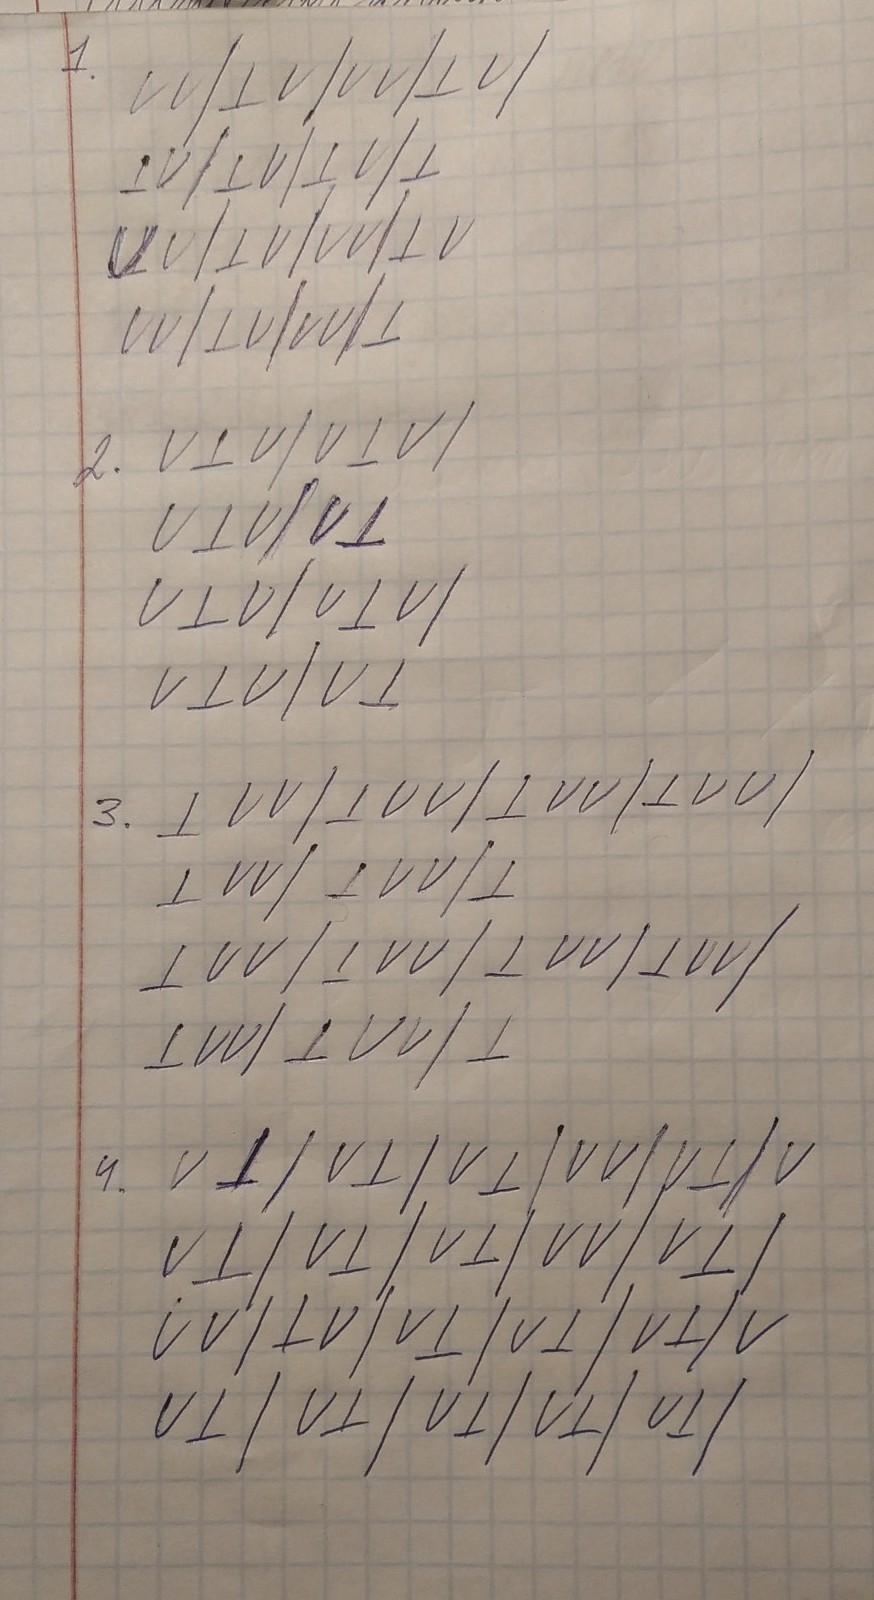 1. ∪∪/⊥∪/∪∪/⊥∪/
⊥∪/⊥∪/⊥∪/⊥
⊥∪/⊥∪/∪∪/⊥∪
∪∪/⊥∪/∪∪/⊥
2. ∪⊥∪/∪⊥∪/
∪⊥∪/∪⊥
∪⊥∪/∪⊥∪/
∪⊥∪/∪⊥
3. ⊥∪∪/⊥∪∪/⊥∪∪/⊥∪∪/
⊥∪∪/⊥∪∪/⊥
⊥∪∪/⊥∪∪/⊥∪∪/⊥∪∪/
⊥∪∪/⊥∪∪/⊥
4. ∪⊥/∪⊥/∪⊥/∪∪/∪⊥/∪
∪⊥/∪⊥/∪⊥/∪∪/∪⊥/
∪∪/⊥∪/∪⊥/∪⊥/∪⊥/∪
∪⊥/∪⊥/∪⊥/∪⊥/∪⊥/